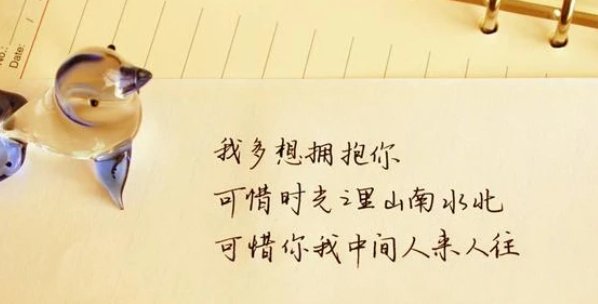 No.:
Date:
我多想拥抱你
可惜时光之里山南水北
可惜你我中间人来人往